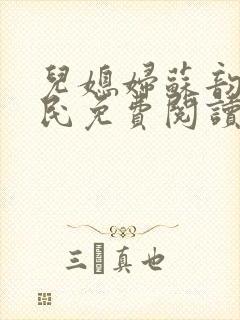 兒媳婦蘇韵
民免費閱讀
三真也